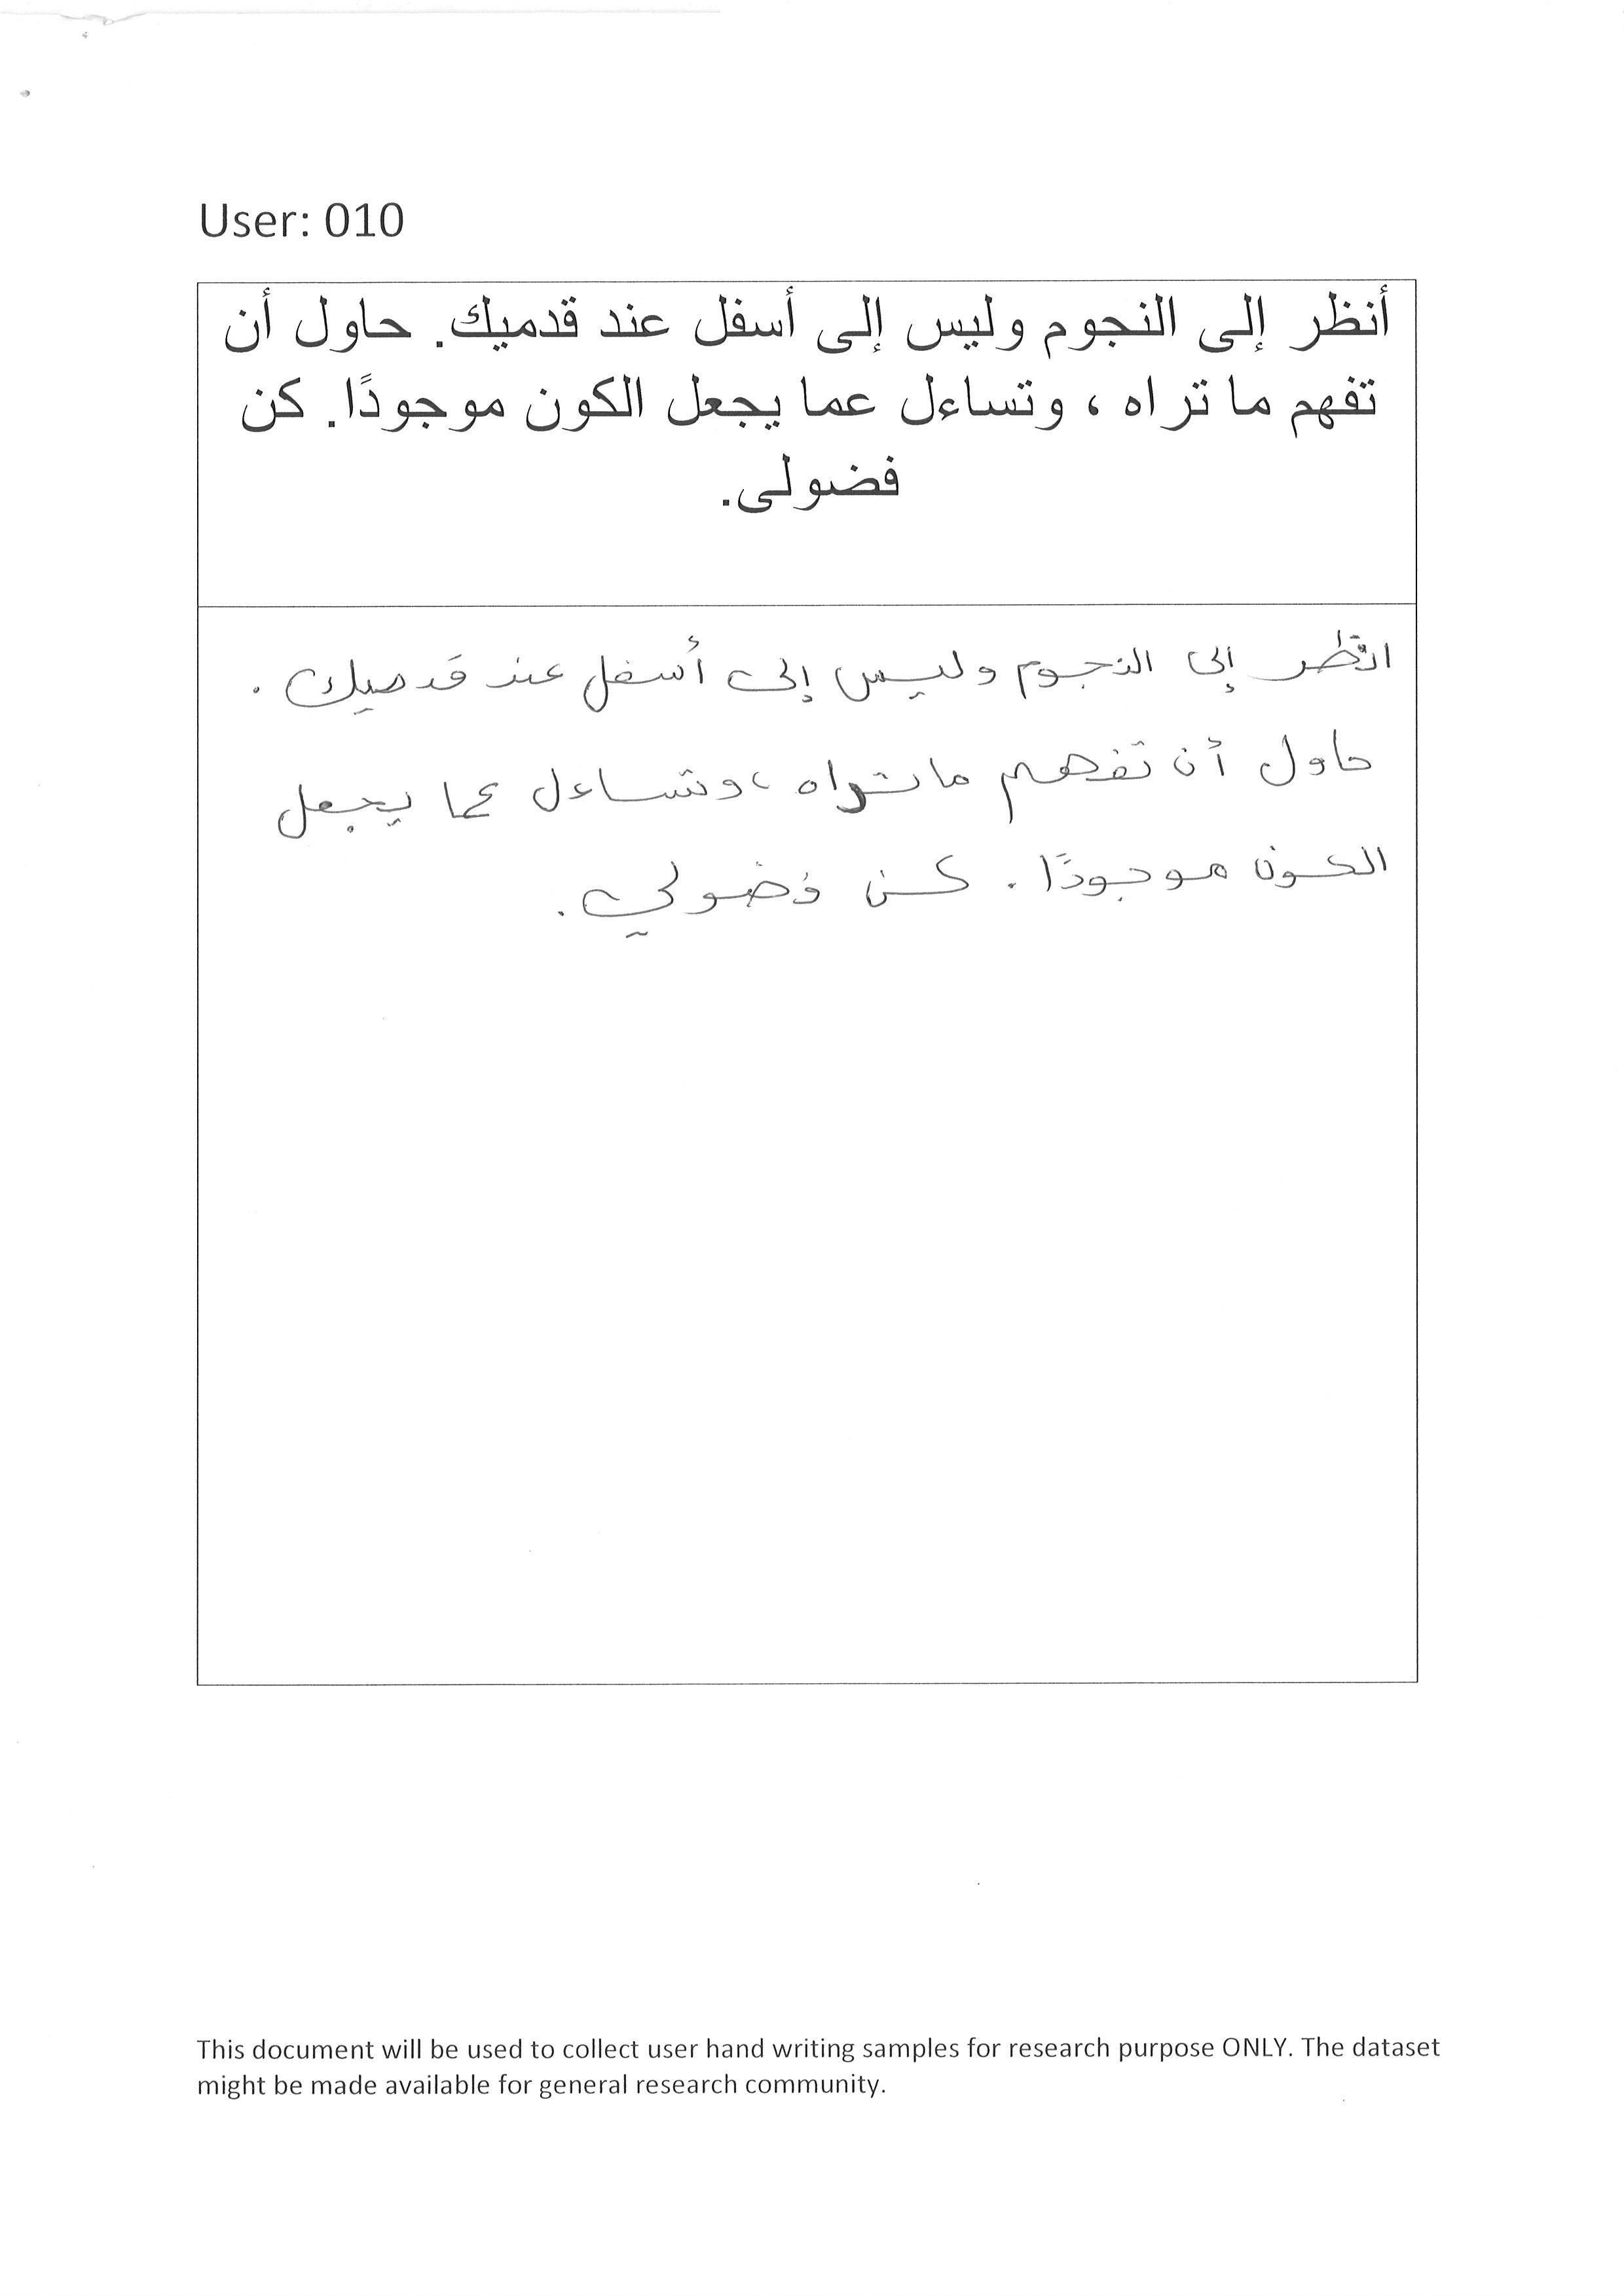 User: 010
أنظر إلى النجوم وليس إلى أسفل عند قدميك. حاول أن
تفهم ما تراه ، وتساءل عما يجعل الكون موجودًا. كن
فضولى.
انظر إلى النجوم وليس إلى أسفل عند قدميك .
حاول أن تفهم ما تراه ، وتساءل عما يجعل
الكون موجودًا . كن فضولي .
This document will be used to collect user hand writing samples for research purpose ONLY. The dataset
might be made available for general research community.